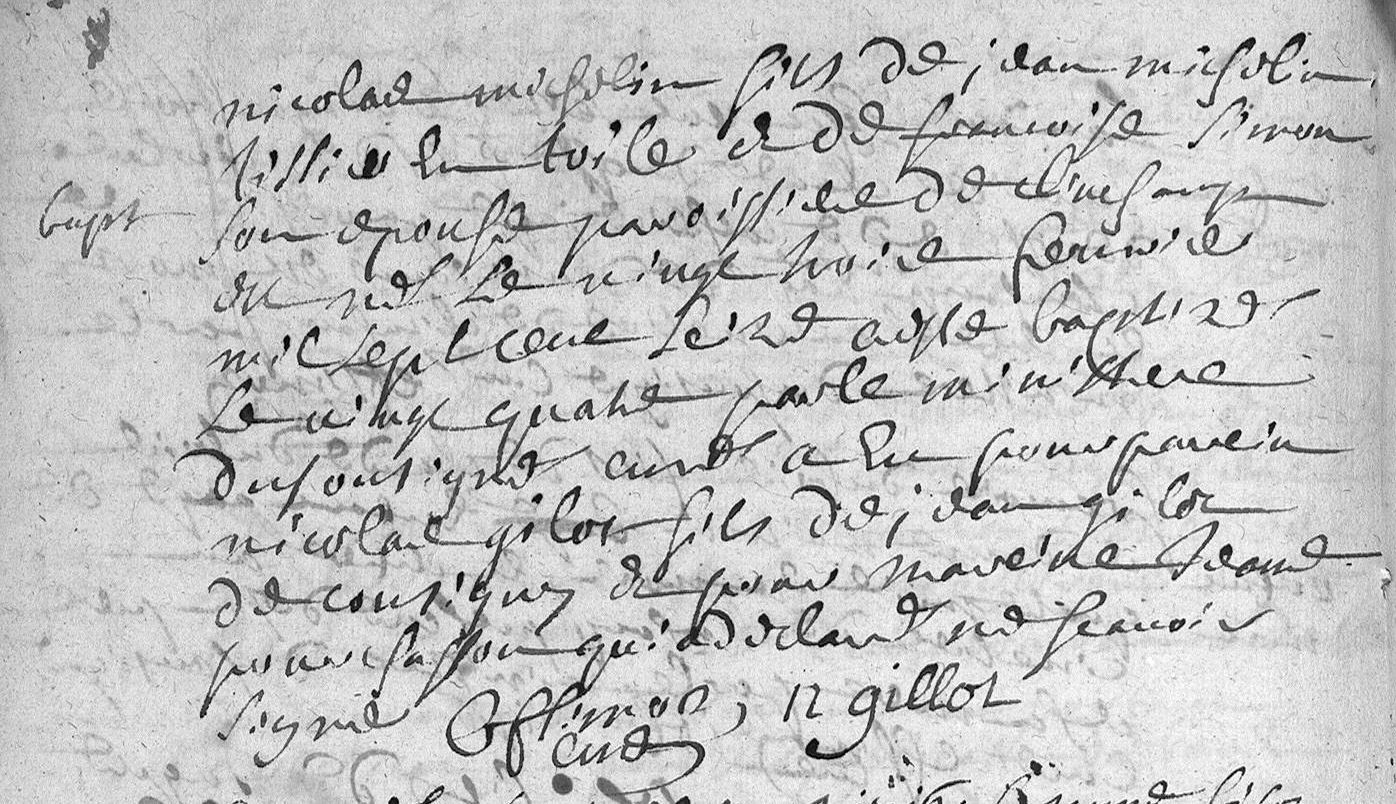 nicolas michelin fils de jean michelin
tissier En toile et de francoise simon
bapt
son epouse paroissiens de clinchamp
est né le vingt trois fevrier
mil sept cent seize a esté baptizé
Le vingt quatre par le ministere
du soussigné curé a Eu pour parein
nicolas gilot fils de jean gilot
de consigny et pour mareine Jeanne
qui a declaré ne scavoir
signer n gillot
curé